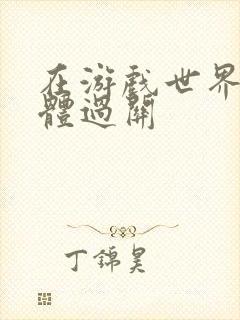 在游戏世界
體過關
丁錦昊